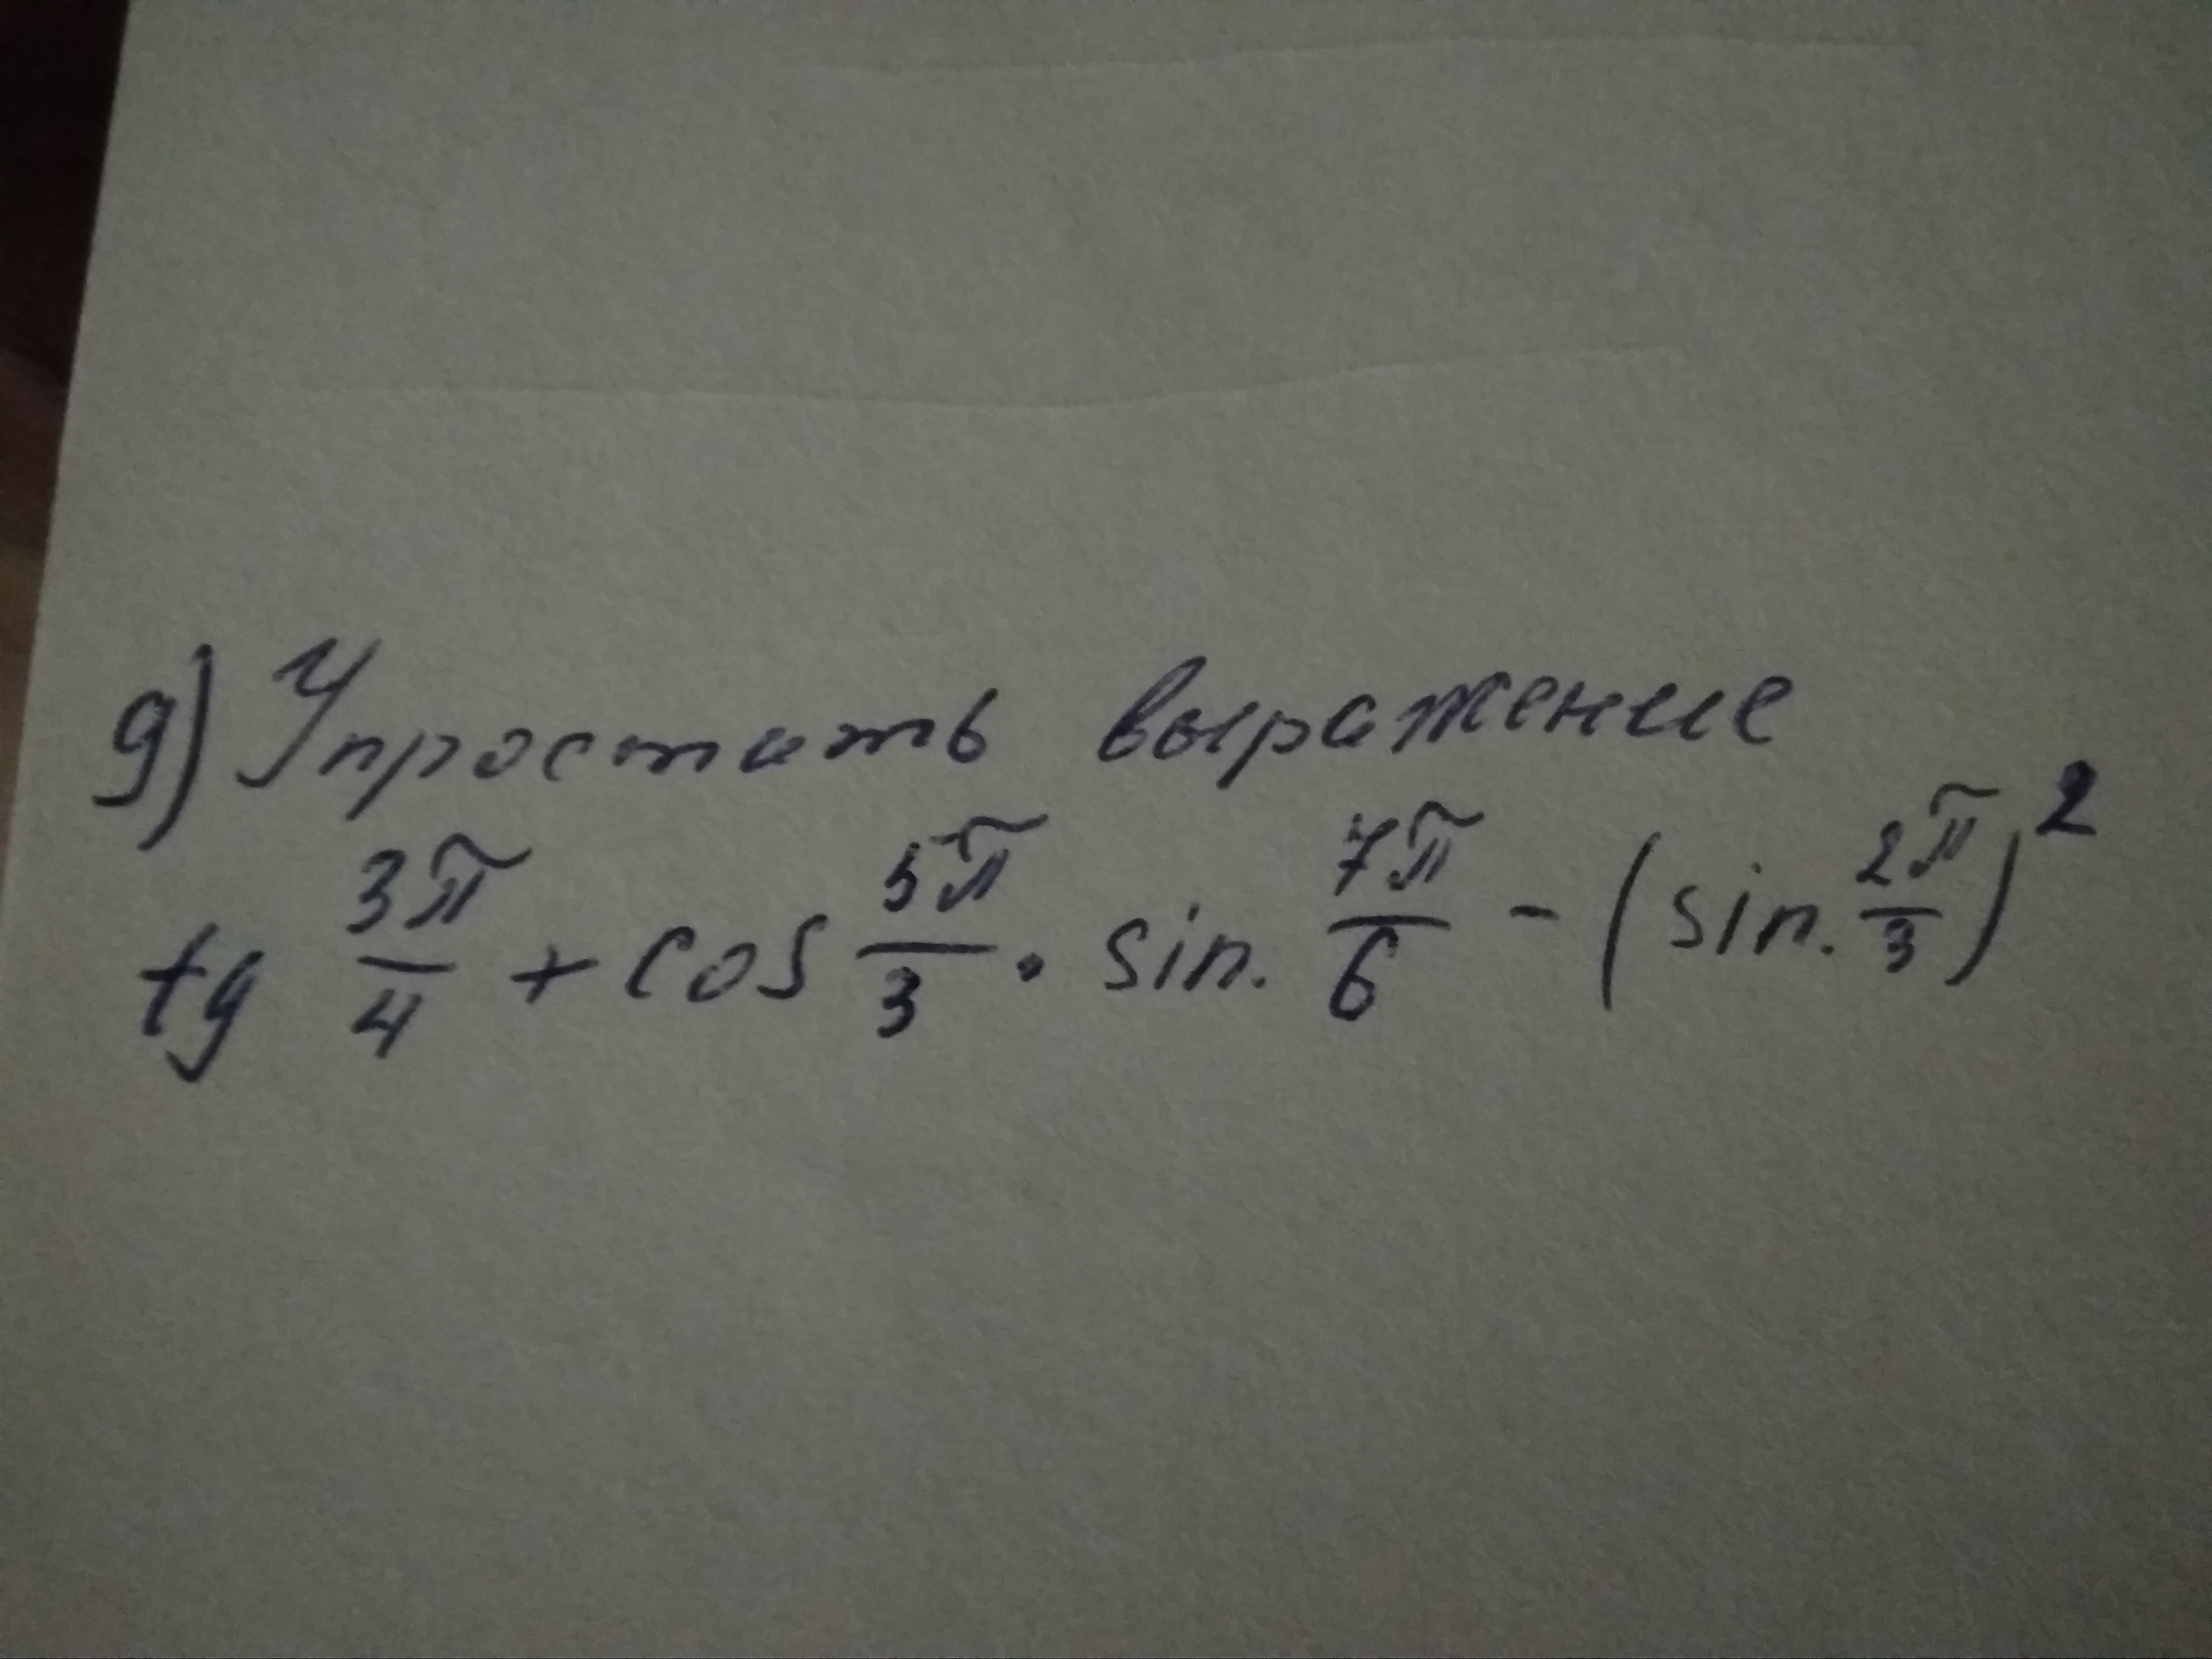 9) Упростить выражение
tg 3π/4 + cos 5π/3 · sin. 7π/6 - (sin. 2π/3)²